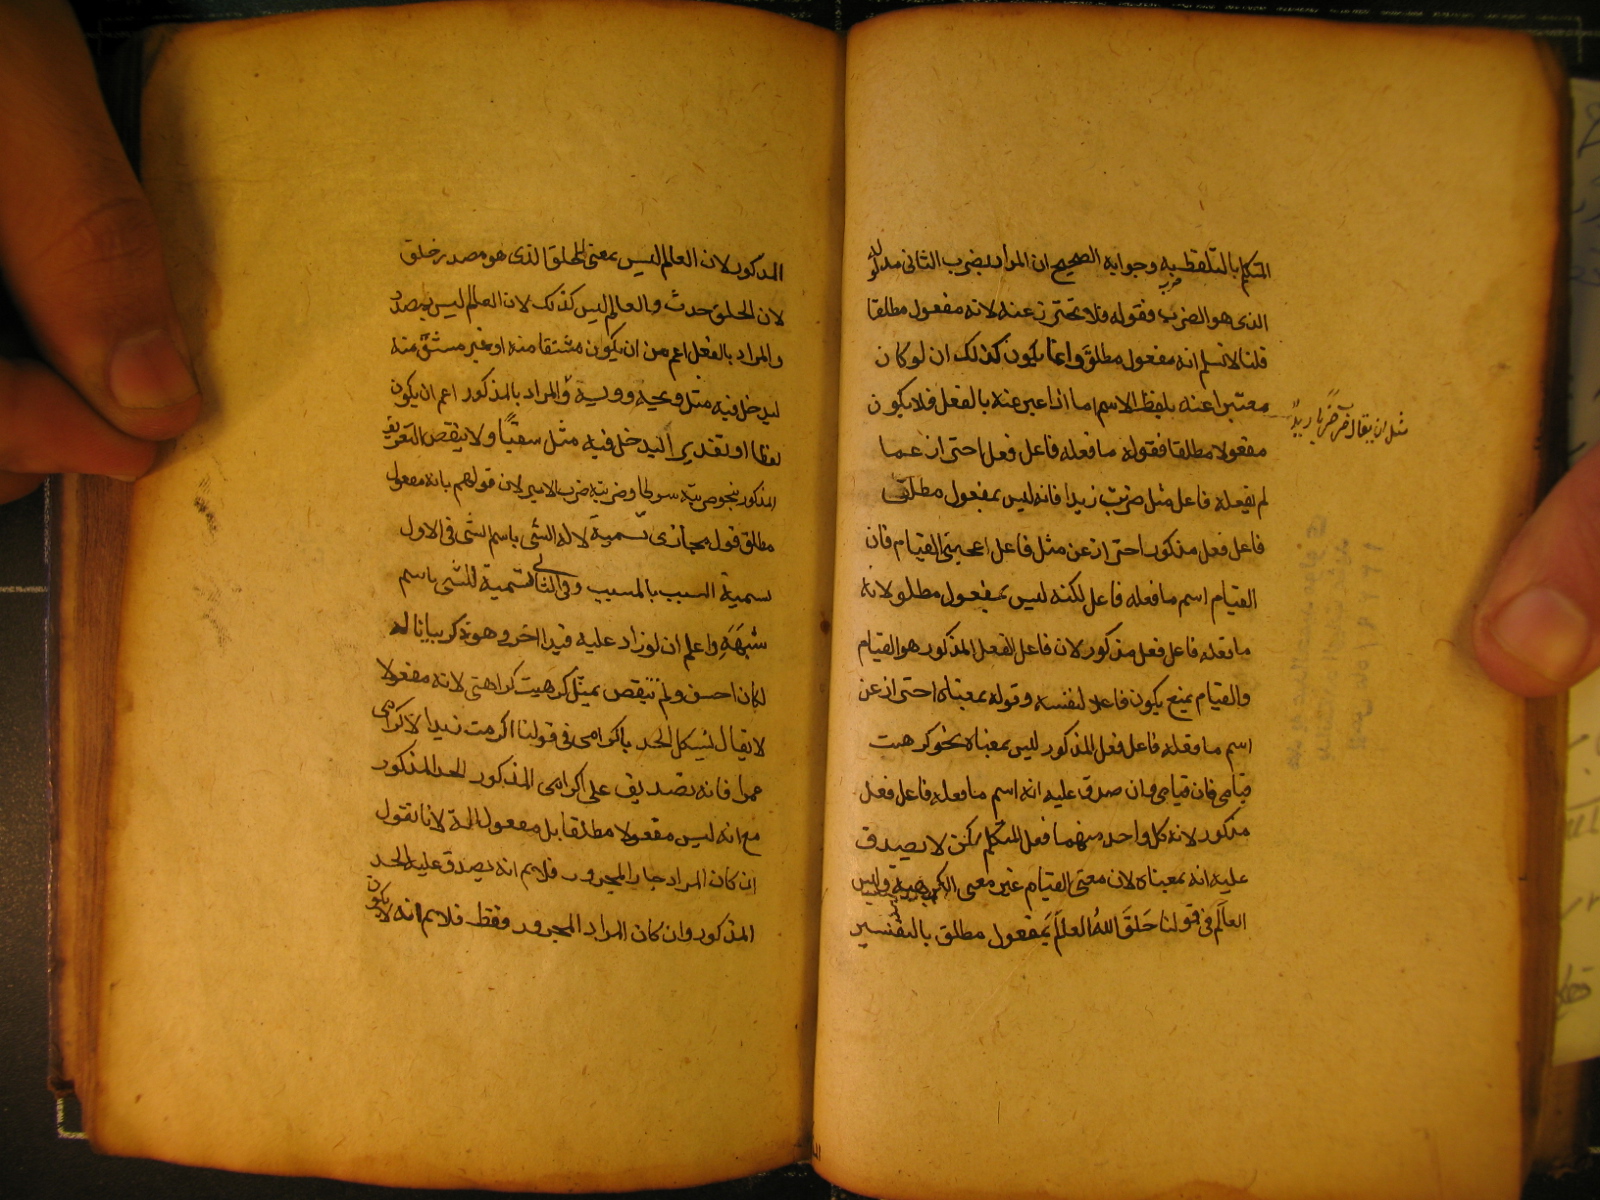 المتكلم بالتلفظ به وجوابه الصحيح ان المراد بضرب الثانى مدلوله
الذى هو الضرب فقوله فلا يحترز عنه لانه مفعول مطلقا
قلنا لا نسلم انه مفعول مطلق وانما يكون كذلك ان لو كان
معتبرا عنه بلفظ الاسم اما اذا عبر عنه بالفعل فلا يكون
مثل ان يقال ضربا زيد
مفعولا مطلقا فقوله ما فعله فاعل فعل احتراز عما
لم يفعله فاعل مثل ضربت زيدا فانه ليس بمفعول مطلق
فاعل فعل مذكور احتراز عن مثل فاعل اعجبنى القيام فان
القيام اسم ما فعله فاعل لكنه ليس بمفعول مطلق لانه
ما فعله فاعل فعل مذكور لان فاعل الفعل المذكور هو القيام
والقيام يمنع يكون فاعلا لنفسه وقوله بمعناه احتراز عن
اسم ما فعله فاعل فعل المذكور ليس بمعناه نحو كرهت
قيامى فان قيامى وان صدق عليه انه اسم ما فعله فاعل فعل
مذكور لانه كل واحد منهما فعل المتكلم لكن لا يصدق
عليه انه بمعناه لان معنى القيام غير معنى الكراهية وليس
العالَم فى قولنا خَلَقَ اللهُ العالَمَ بمفعول مطلق بالتفسير
المذكور لان العالم ليس بمعنى الخلق الذى هو مصدر خلق
لان الخلق حدث والعالم ليس كذلك لان العالم ليس بمصدر
والمراد بالفعل اعم من ان يكون مشتقا منه او غير مشتق منه
ليدخل فيه مثل ويحه وويسه والمراد بالمذكور اعم ان يكون
لفظا او تقديرا ليدخل فيه مثل سقيًا ولا ينقص التعريف
المذكور بنحو ضربته سوطا وضربته ضرب الامير لان قولهم بانه مفعول
مطلق قول مجازى تسمية لاله الشى باسم الشى فى الاول
تسمية السبب بالمسبب وفى الثانى تسمية للشى باسم
شبهه واعلم ان لو زاد عليه قيدا اخر وهو ذكر بيانا له
لكان احسن ولم ينقص بمثل كرهيت كراهتى لانه مفعولا
لا يقال يشكل الحد باكرامى فى قولنا اكرمت زيدا لاكرامى
عمرا فانه تصديق على اكرامى المذكور الحد المذكور
مع انه ليس مفعولا مطلقا بل مفعول له لانا نقول
ان كان المراد جار المجرور فلا نم انه يصدق عليه الحد
المذكور وان كان المراد المجرور فقط فلا نم انه لا يكون